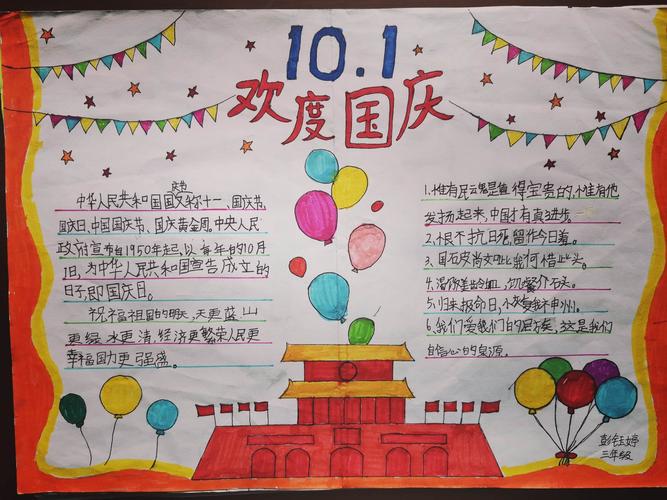 10.1
欢度国庆
中华人民共和国国庆又称十一、国庆节、
国庆日、中国国庆节、国庆黄金周。中央人民
政府宣布自1950年起,以每年的10月
1日,为中华人民共和国宣告成立的
日子,即国庆日。
祝福祖国的明天,天更蓝山
更绿水更清,经济更繁荣人民更
幸福国力更强盛。
1.惟有民云鬼是值得宝贵的,惟有他
发扬起来,中国才有真进步。
2.恨不抗日死,留作今日羞。
3.国石皮尚如此,我何惜此头。
切
石头。
5.归来报命日,
我神州。
6.我们爱我们的
,这是我们
自信心的泉源。
三年级